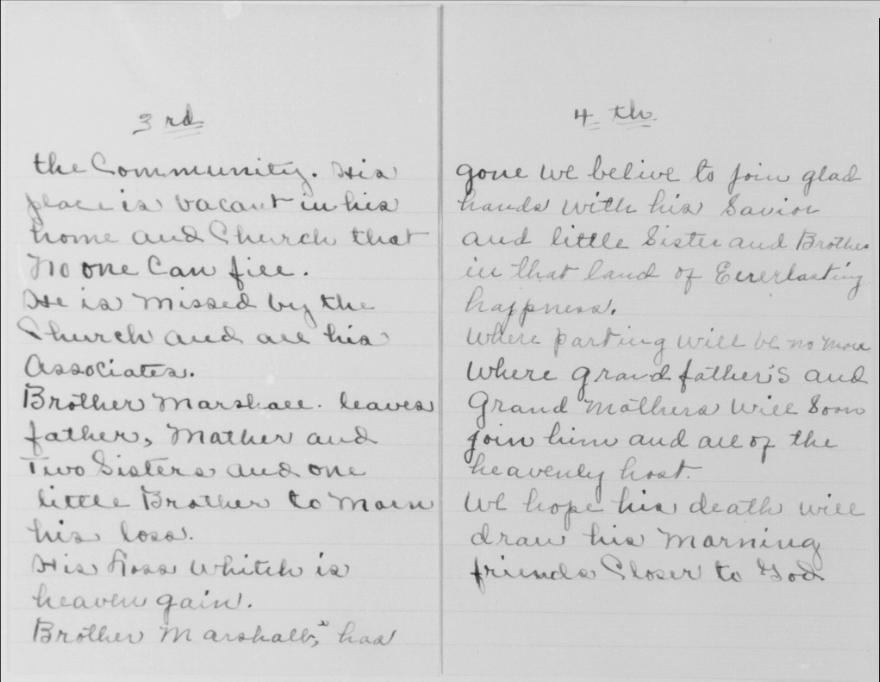 3 rd
the Community. His
place is vacant in his
home and Church that
No one Can fill.
He is missed by the
Church and all his
Associates.
Brother Marshall. leaves
father, Mather and
Two Sisters and one
little Brother to Morn
his loss.
His Loss Whitch is
heaven gain.
Brother Marshall, has
4 th.
gone we belive to join glad
hands with his Savior
and little Sister and Brother
in that land of Eeverlasting
happness.
Where parting will be no more
Where Grand father's and
Grand Mothers will Soon
join him and all of the
heavenly host.
We hope his death will
draw his Morning
friends Closer to God